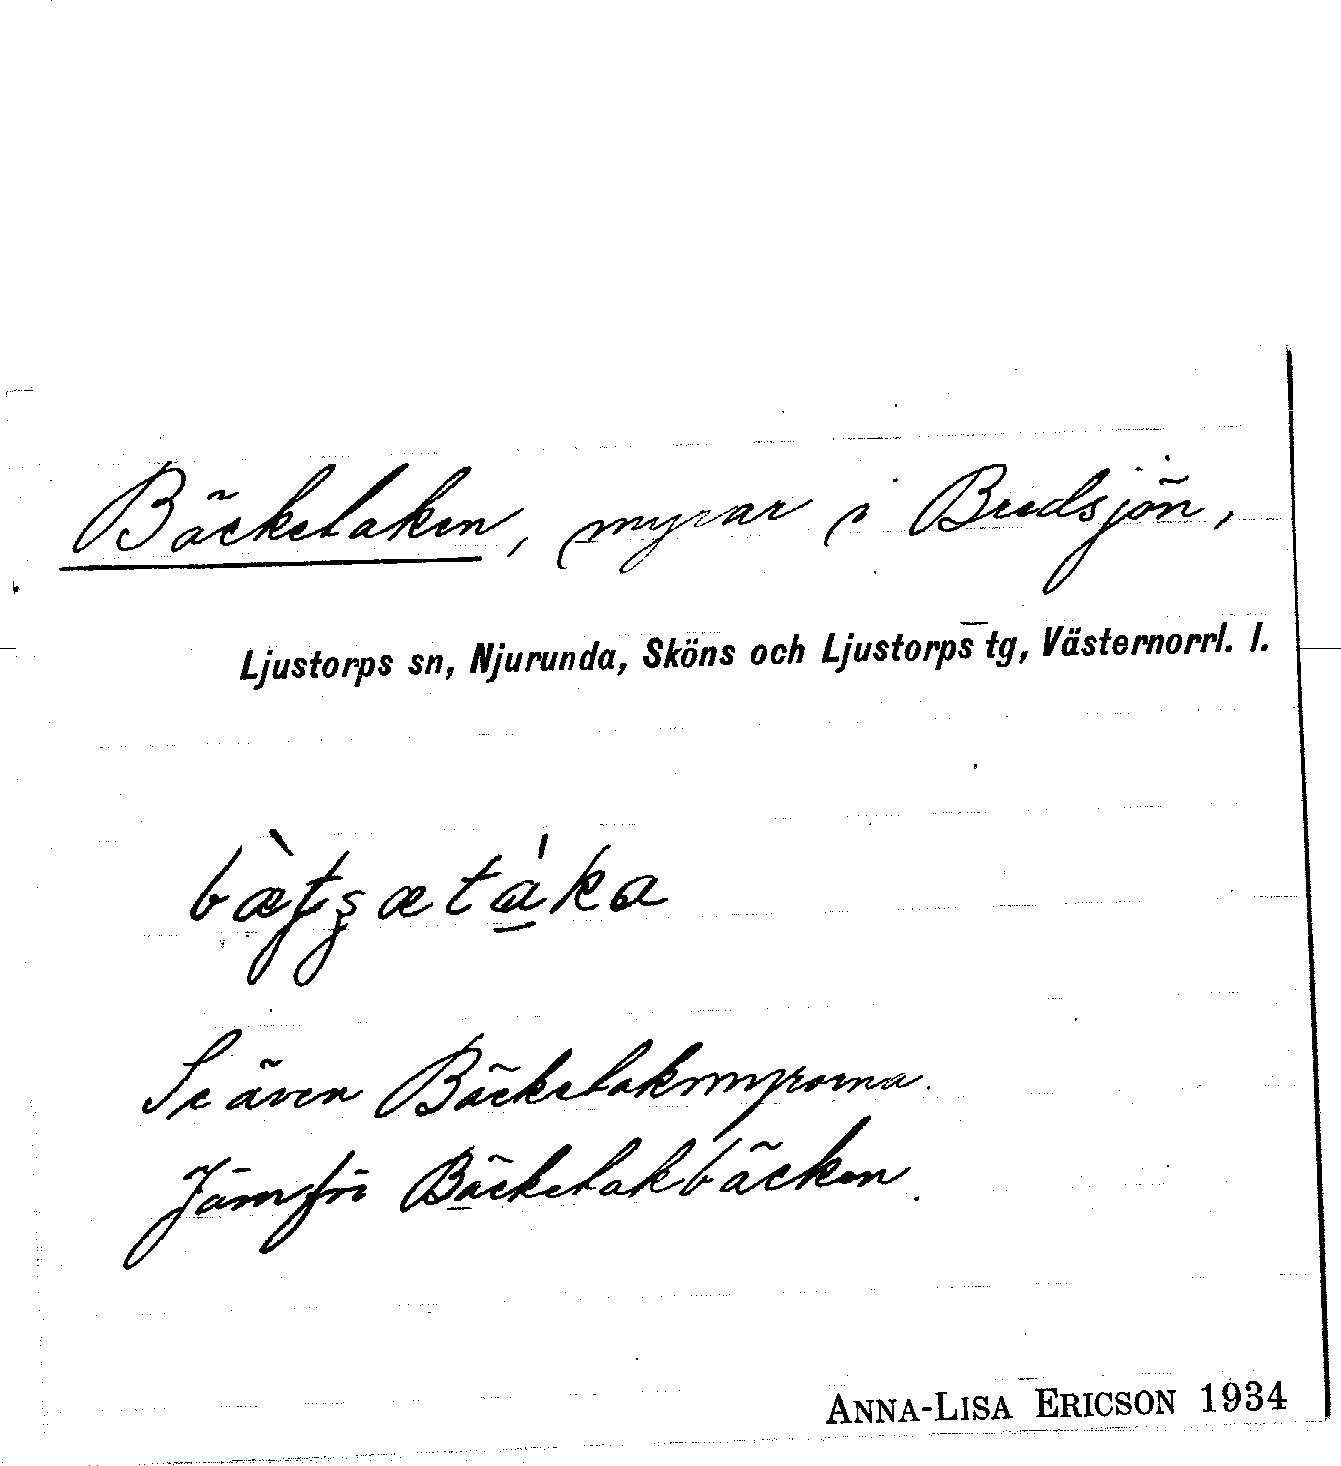 Bäcketaken, myrar i Bredsjön,
Ljustorps sn, Njurunda, Sköns och Ljustorps tg, Västernorrl. l.
Se även Bäcketakmyrorna.
Jämför Bäcketakbäcken.
ANNA-LISA ERICSON 1934